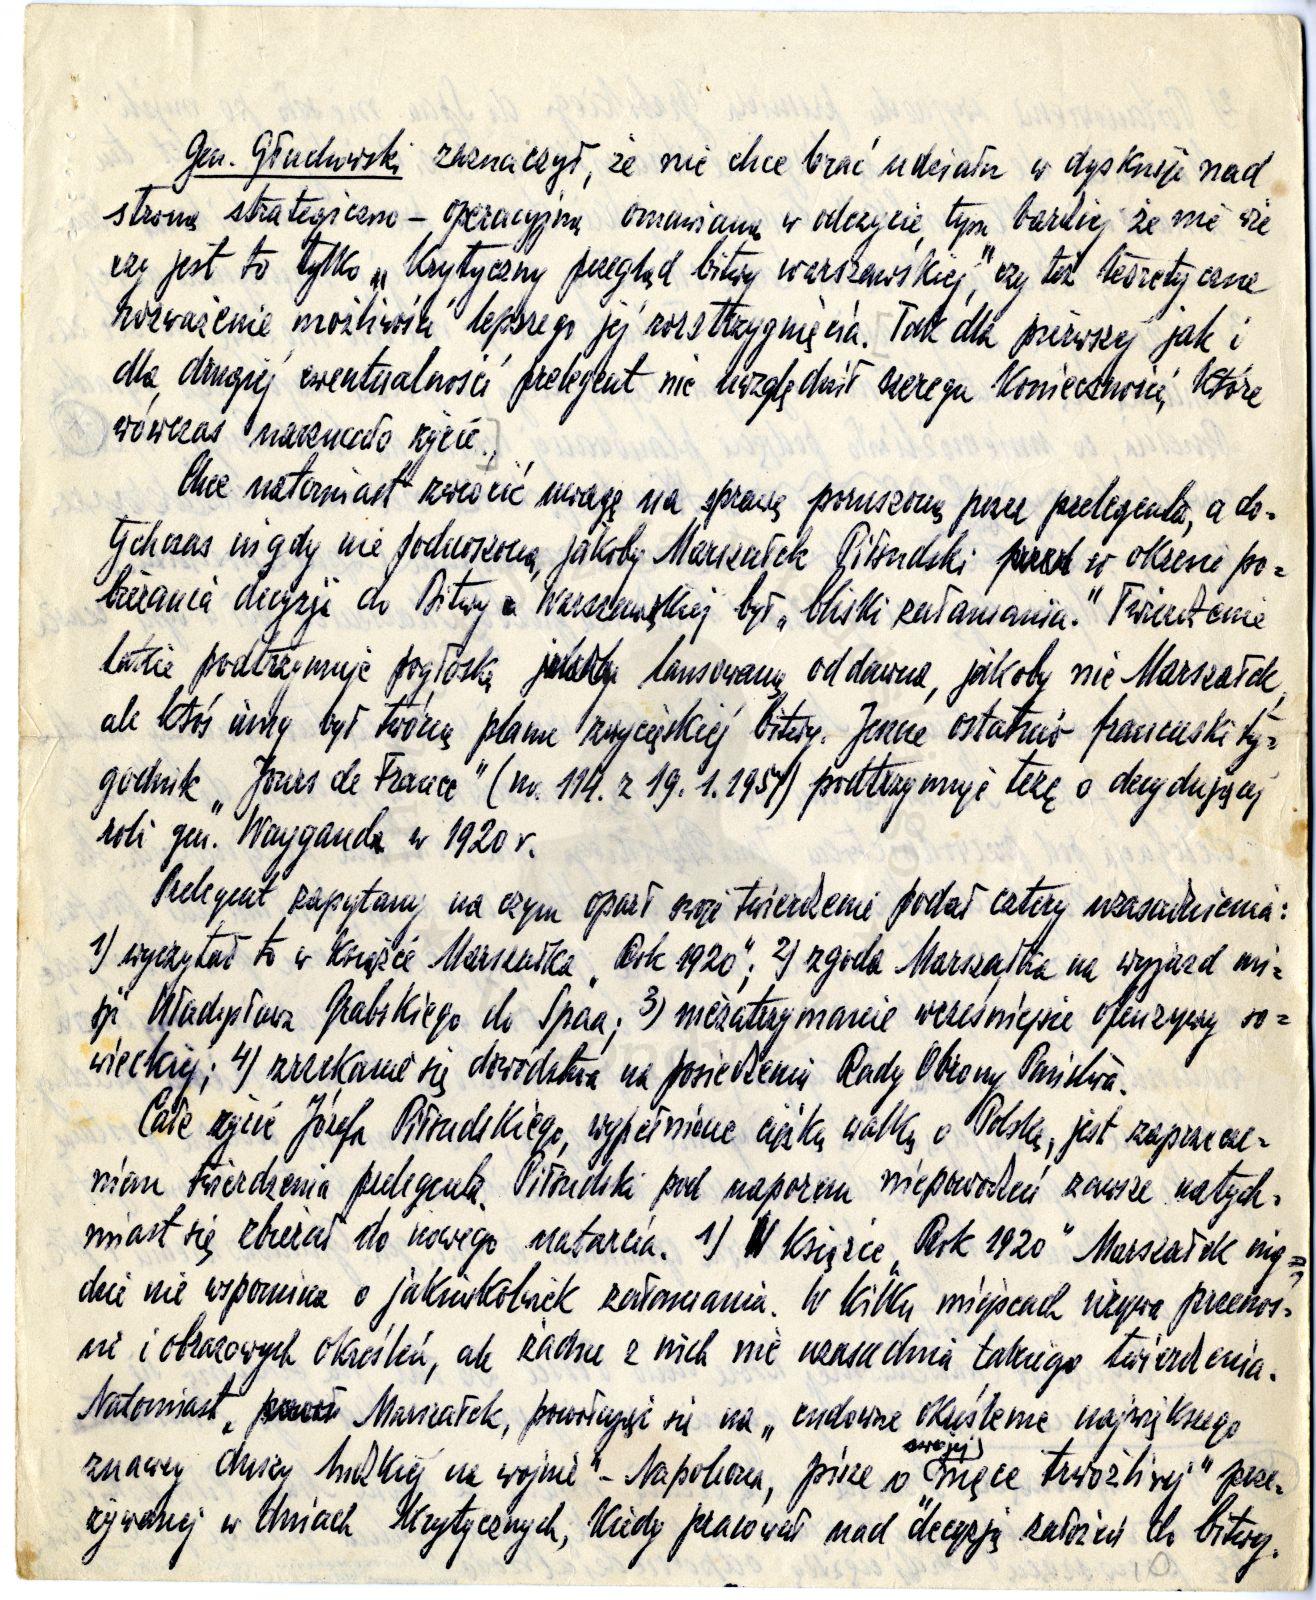 Gen. Głuchowski zaznaczył, że nie chce brać udziału w dyskusji nad
stroną strategiczno - operacyjną omawianą w odczycie, tym bardziej że nie wie
czy jest to tylko „Krytyczny przegląd bitwy warszawskiej," czy też teoretyczne
rozważenie możliwości lepszego jej rozstrzygnięcia. Tak dla pierwszej jak i
dla drugiej ewentualności prelegent nie uwzględnił szeregu konieczności, które
wówczas narzucało życie.
Chce natomiast zwrócić uwagę na sprawę poruszoną przez prelegenta, a do-
tychczas nigdy nie podnoszoną, jakoby Marszałek Piłsudski w okresie po-
bierania decyzji do Bitwy Warszawskiej był „bliski załamania." Twierdzenie
takie podtrzymuje pogłoskę lansowaną oddawna, jakoby nie Marszałek,
ale ktoś inny był twórcą planu zwycięskiej bitwy. Jeszcze ostatnio francuski ty-
godnik „Jours de France" (nr. 114. z 19. 1. 1957) podtrzymuje tezę o decydującej
roli gen. Weyganda w 1920 r.
Prelegent zapytany na czym oparł swoje twierdzenie podał cztery uzasadnienia:
1) wyczytał to w książce Marszałka „Rok 1920"; 2) zgoda Marszałka na wyjazd mi-
sji Władysława Grabskiego do Spaa; 3) niezatrzymanie wcześniejsze ofenzywy so-
wieckiej; 4) zrzekanie się dowództwa na posiedzeniu Rady Obrony Państwa.
Całe życie Józefa Piłsudskiego, wypełnione ciężką walką o Polskę, jest zaprzecze-
niem twierdzenia prelegenta. Piłsudski pod naporem niepowodzeń zawsze natych-
miast się zbierał do nowego natarcia. 1) W książce „Rok 1920" Marszałek nig-
dzie nie wspomina o jakimkolwiek załamaniu. W kilku miejscach używa przenoś-
ni i obrazowych określeń, ale żadne z nich nie uzasadnia takiego twierdzenia.
Natomiast, Marszałek, powołując się na „cudowne określenie największego
znawcy duszy ludzkiej na wojnie" - Napoleona, pisze o swojej „męce trwożliwej" prze-
żywanej w dniach krytycznych, kiedy pracował nad decyzją założeń do bitwy.